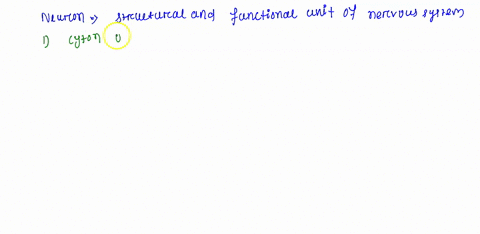 Neuron => structural and functional unit of nervous system
1) cyton o